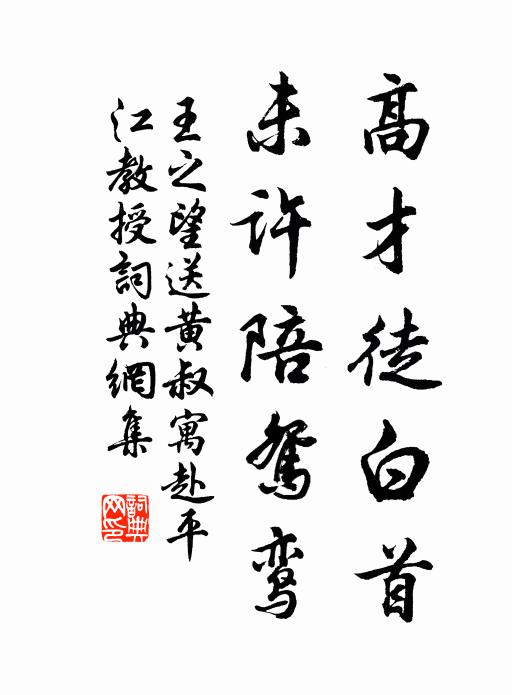 高才徒白首
未许陪鴛鸾
王之望送黄叔寓赴平
江教授詞典網集
詞典网印